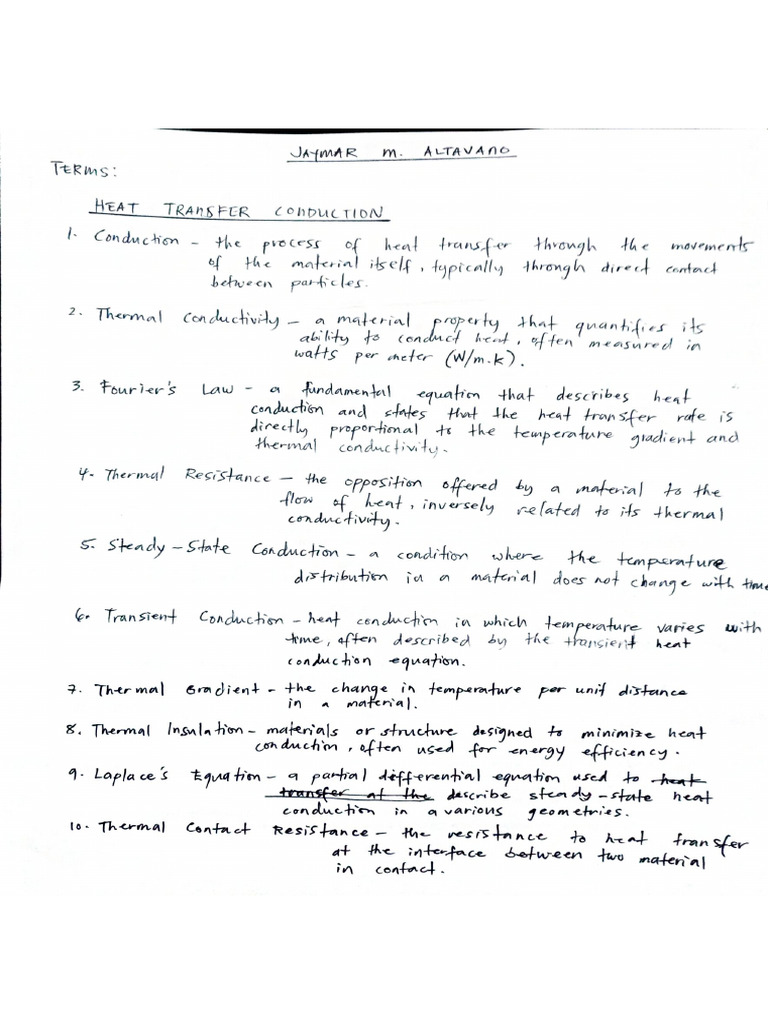 JAYMAR M. ALTAVANO
TERMS:
HEAT TRANSFER CONDUCTION
1. Conduction – the process of heat transfer through the movements
of the material itself, typically through direct contact
between particles.
2. Thermal Conductivity – a material property that quantifies its
ability to conduct heat, often measured in
watts per meter (W/m.k).
3. Fourier's Law – a fundamental equation that describes heat
conduction and states that the heat transfer rate is
directly proportional to the temperature gradient and
thermal conductivity.
4. Thermal Resistance – the opposition offered by a material to the
flow of heat, inversely related to its thermal
conductivity.
5. Steady – State Conduction – a condition where the temperature
distribution in a material does not change with time
6. Transient Conduction – heat conduction in which temperature varies with
time, often described by the transient heat
conduction equation.
7. Thermal Gradient – the change in temperature per unit distance
in a material.
8. Thermal Insulation – materials or structure designed to minimize heat
conduction, often used for energy efficiency.
9. Laplace's Equation – a partial differential equation used to heat
transfer at the describe steady-state heat
conduction in a various geometries.
10. Thermal Contact Resistance – the resistance to heat transfer
at the interface between two material
in contact.